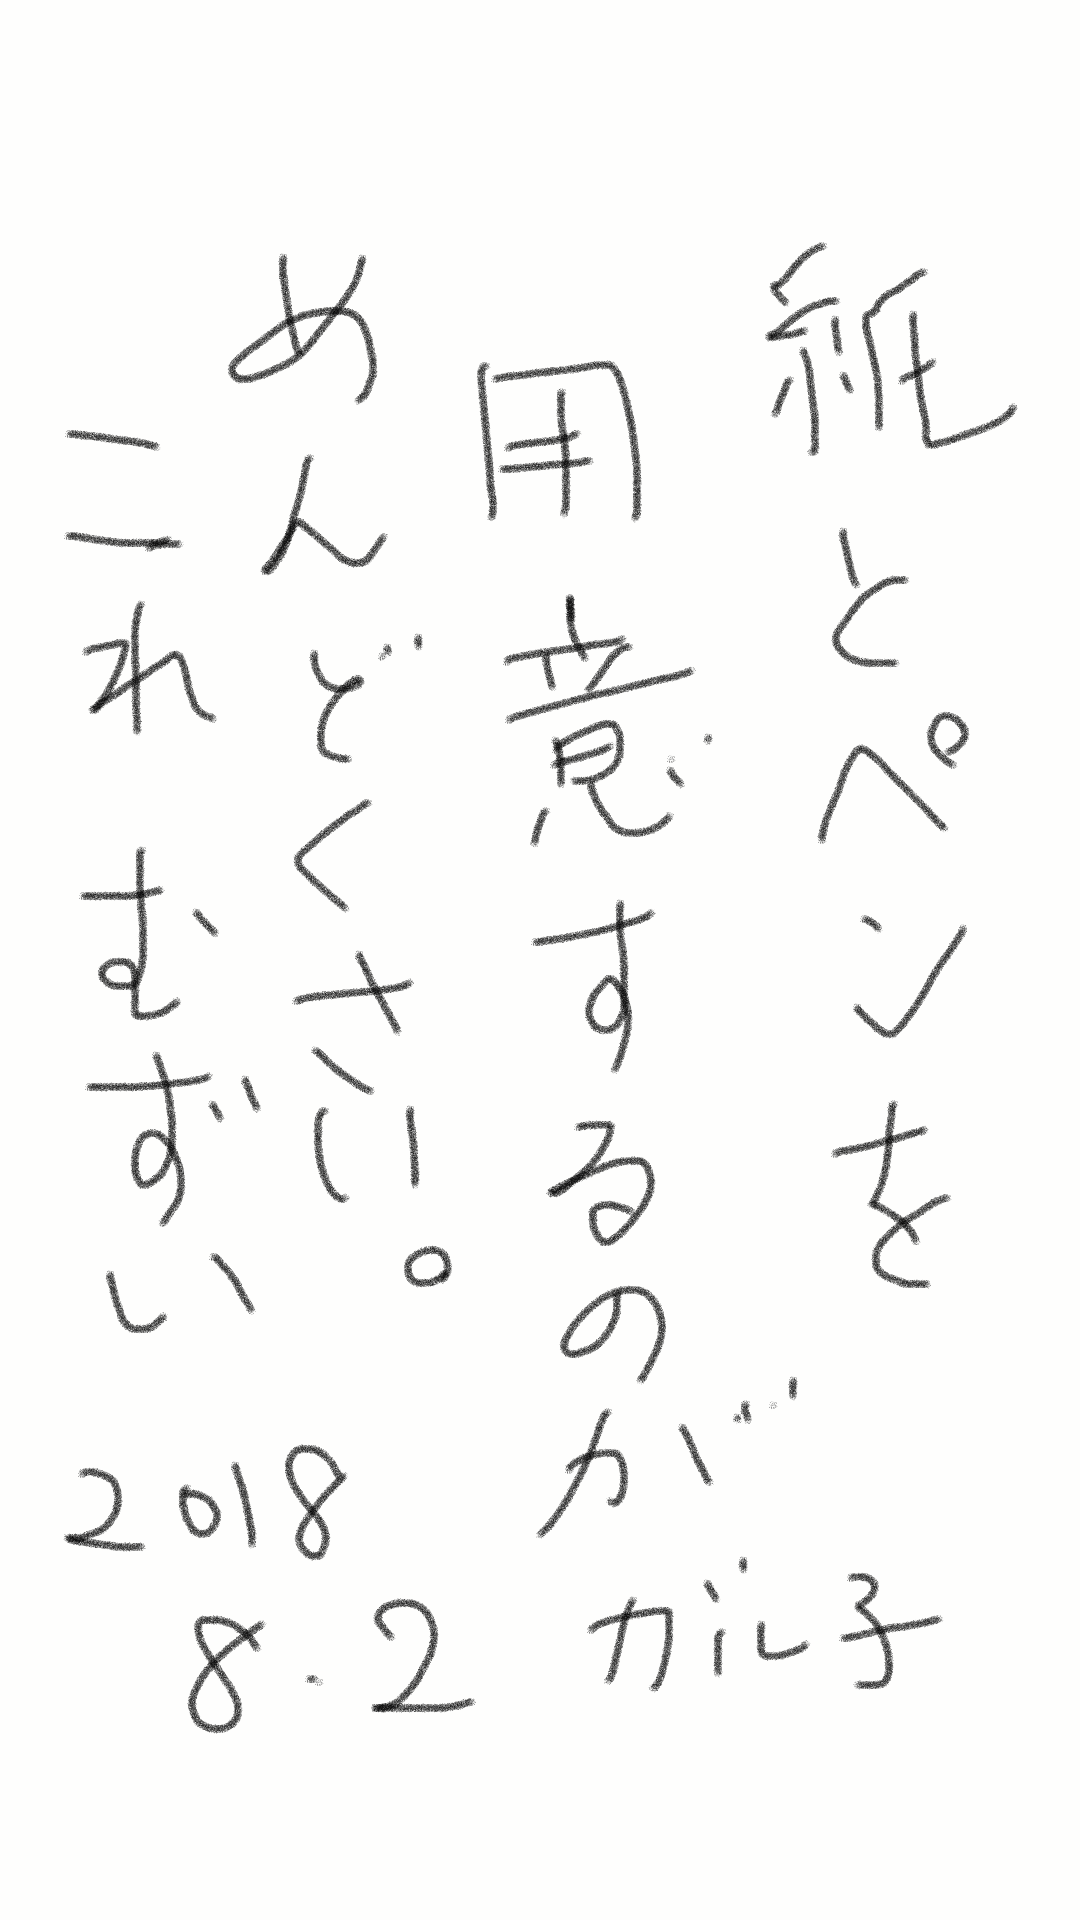 紙とペンを
用意するのが
めんどくさい。
これむずい
2018
8.2
ガル子